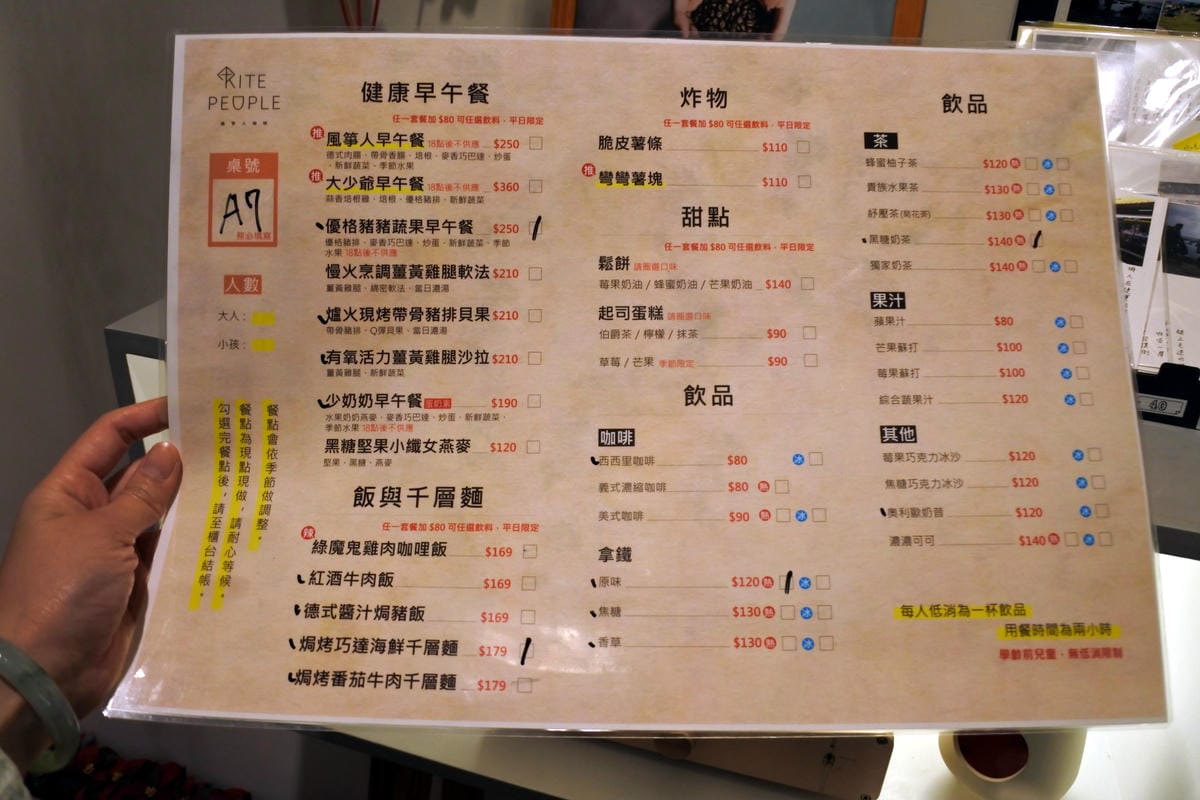 RITE
PEOPLE
風箏人咖啡
桌號
A7
務必填寫
人數
大人：
小孩：
餐點會依季節做調整。
餐點為現點現做，請耐心等候。
勾選完餐點後，請至櫃台結帳。
健康早午餐
任一套餐加 $80 可任選飲料，平日限定
推 風箏人早午餐 18點後不供應 $250
德式肉腸、帶骨香腸、培根、麥香巧巴達、炒蛋
、新鮮蔬菜、季節水果
推 大少爺早午餐 18點後不供應 $360
蒜香培根雞、培根、優格豬排、新鮮蔬菜
優格豬豬蔬果早午餐 $250
優格豬排、麥香巧巴達、炒蛋、新鮮蔬菜、季節
水果 18點後不供應
慢火烹調薑黃雞腿軟法 $210
薑黃雞腿、綿密軟法、當日濃湯
爐火現烤帶骨豬排貝果 $210
帶骨豬排、Q彈貝果、當日濃湯
有氧活力薑黃雞腿沙拉 $210
薑黃雞腿、新鮮蔬菜
少奶奶早午餐 蛋奶素 $190
水果奶奶燕麥、麥香巧巴達、炒蛋、新鮮蔬菜、
季節水果 18點後不供應
黑糖堅果小纖女燕麥 $120
堅果、黑糖、燕麥
飯與千層麵
任一套餐加 $80 可任選飲料，平日限定
辣 綠魔鬼雞肉咖哩飯 $169
紅酒牛肉飯 $169
德式醬汁焗豬飯 $169
焗烤巧達海鮮千層麵 $179
焗烤番茄牛肉千層麵 $179
炸物
任一套餐加 $80 可任選飲料，平日限定
脆皮薯條 $110
推 彎彎薯塊 $110
甜點
任一套餐加 $80 可任選飲料，平日限定
鬆餅 請圈選口味
莓果奶油 / 蜂蜜奶油 / 芒果奶油 $140
起司蛋糕 請圈選口味
伯爵茶 / 檸檬 / 抹茶 $90
草莓 / 芒果 季節限定 $90
飲品
咖啡
西西里咖啡 $80 冰
義式濃縮咖啡 $80 熱
美式咖啡 $90 熱 冰
拿鐵
原味 $120 熱 冰
焦糖 $130 熱 冰
香草 $130 熱 冰
飲品
茶
蜂蜜柚子茶 $120 熱 冰
貴族水果茶 $130 熱 冰
紓壓茶(菊花茶) $130 熱 冰
黑糖奶茶 $140 熱
獨家奶茶 $140 熱 冰
果汁
蘋果汁 $80 冰
芒果蘇打 $100 冰
莓果蘇打 $100 冰
綜合蔬果汁 $120 冰
其他
莓果巧克力冰沙 $120 冰
焦糖巧克力冰沙 $120 冰
奧利歐奶昔 $120 冰
濃濃可可 $140 熱 冰
每人低消為一杯飲品
用餐時間為兩小時
學齡前兒童，無低消限制
40